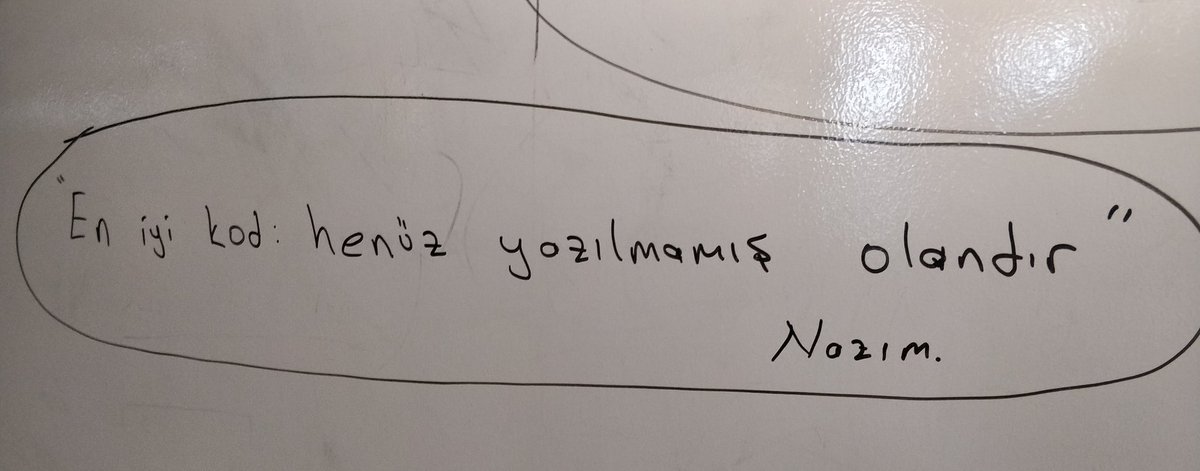 "En iyi kod: henüz yazılmamış olandır"
Nazım.